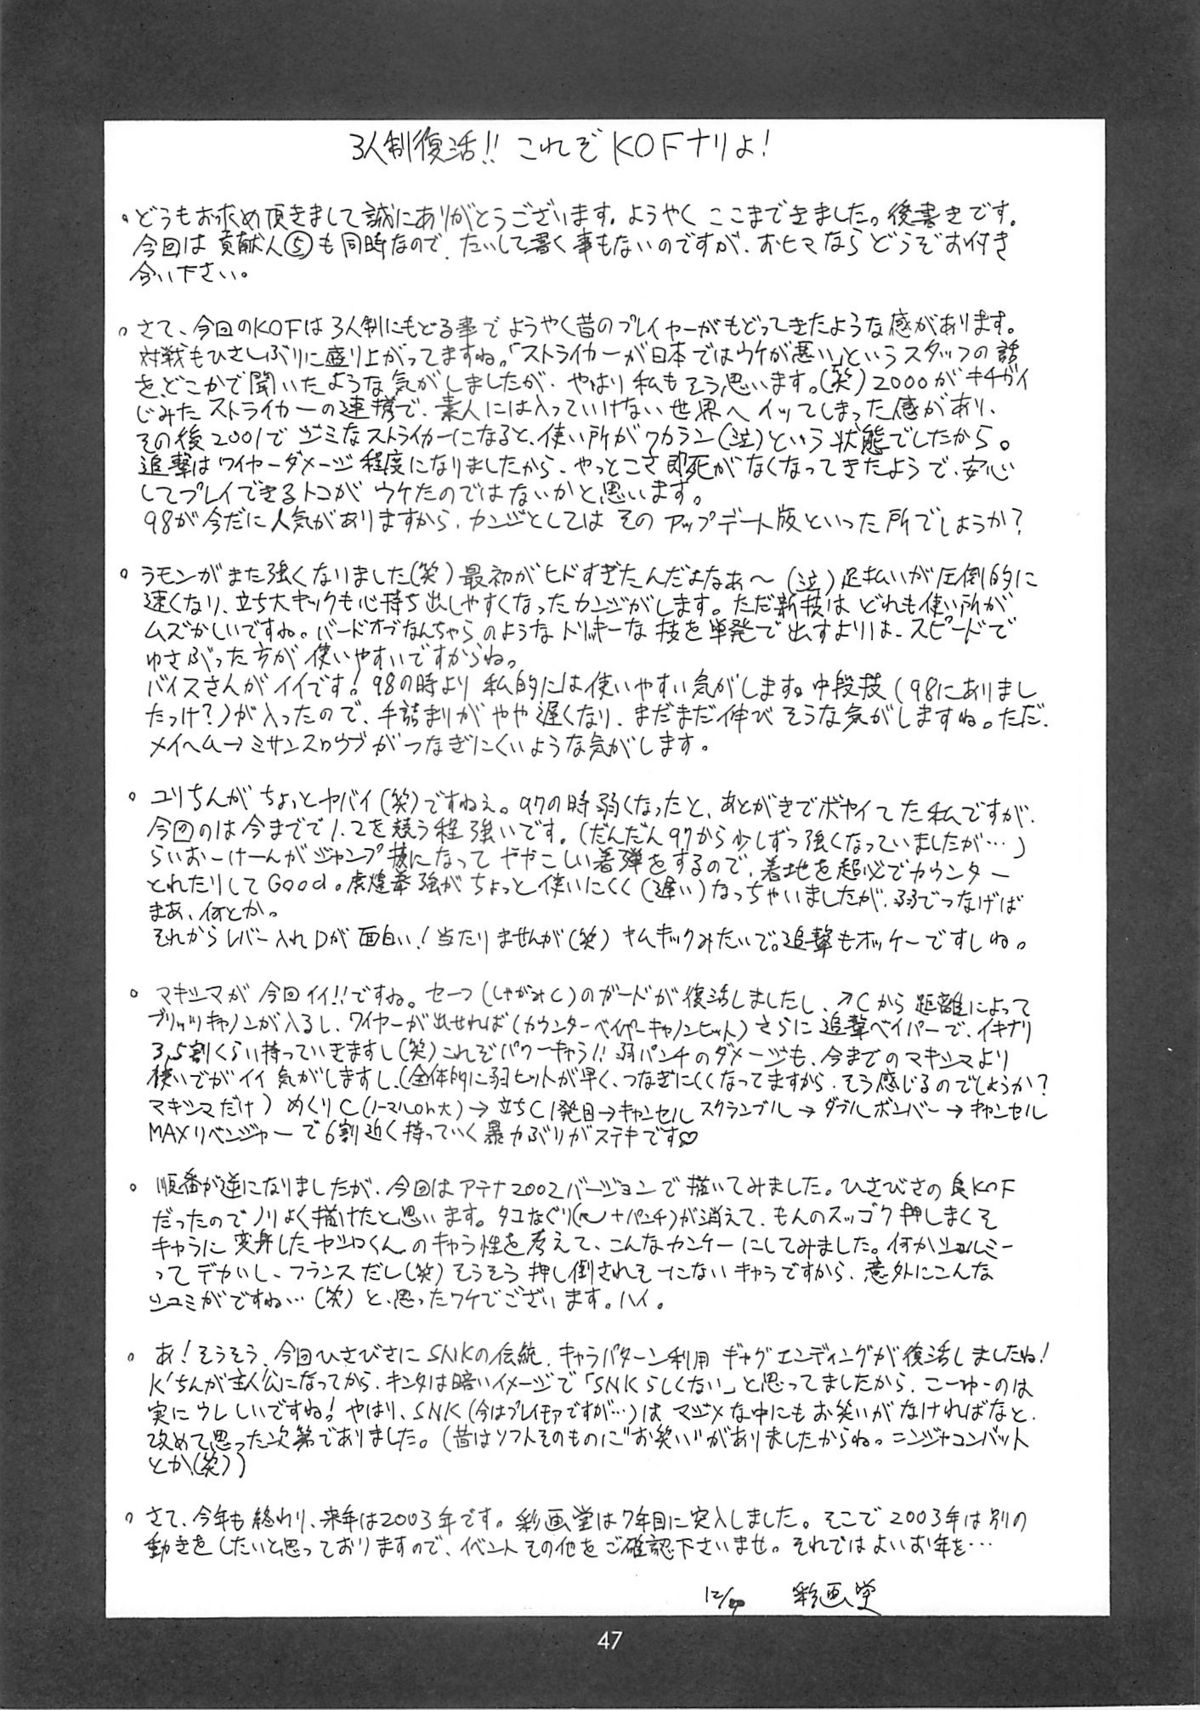 3人制復活!! これぞKOFナリよ!
。どうもお求め頂きまして誠にありがとうございます。ようやく ここまできました。後書きです。
今回は貢献人⑤も同時なので、たいして書く事もないのですが、おヒマならどうぞお付き
合い下さい。
。さて、今回のKOFは3人制にもどる事でようやく昔のプレイヤーがもどってきたような感があります。
対戦もひさしぶりに盛り上がってますね。「ストライカーが日本ではウケが悪い」というスタッフの話
を、どこかで聞いたような気がしましたが、やはり私もそう思います。(笑)2000がキチガイ
じみたストライカーの連携で、素人には入っていけない世界へイッてしまった感があり、
その後2001でゴミなストライカーになると、使い所がワカラン(泣)という状態でしたから。
追撃はワイヤーダメージ程度になりましたから、やっとこさ即死がなくなってきたようで、安心
してプレイできるトコが ウケたのではないかと思います。
98が今だに人気がありますから、カンジとしては そのアップデート版といった所でしょうか?
。ラモンがまた強くなりました(笑)最初がヒドすぎたんだよなあ〜(泣)足払いが圧倒的に
速くなり、立ち大キックも心持ち出しやすくなったカンジがします。ただ新技は どれも使い所が
ムズかしいですね。バードオブなんちゃらのようなトリッキーな技を単発で出すよりは、スピードで
ゆさぶった方が使いやすいですからね。
バイスさんがイイです!98の時より私的には使いやすい気がします。中段技(98にありまし
たっけ?)が入ったので、手詰まりがやや遅くなり、まだまだ伸びそうな気がしますね。ただ、
メイヘム→ミサンスロウプがつなぎにくいような気がします。
。ユリちんがちょっとヤバイ(笑)ですねぇ。97の時弱くなったと、あとがきでボヤイてた私ですが、
今回のは今までで1.2を競う程強いです。(だんだん97から少しずつ強くなっていましたが…)
らいおーけーんがジャンプ技になってややこしい着弾をするので、着地を超必でカウンター
とれたりしてGood。虎煌拳強がちょっと使いにくく(遅い)なっちゃいましたが、弱でつなげば
まあ、何とか。
それからレバー入れDが面白い!当たりませんが(笑)キムキックみたいで。追撃もオッケーですしね。
。マキシマが今回イイ!!ですね。セーフ(しゃがみC)のガードが復活しましたし、↗Cから距離によって
ブリッツキャノンが入るし、ワイヤーが出せれば(カウンターベイパーキャノンヒット)さらに追撃ベイパーで、イキナリ
3.5割くらい持っていきますし(笑)これぞパワーキャラ!!弱パンチのダメージも、今までのマキシマより
使いでがイイ気がしますし、(全体的に弱ヒットが早く、つなぎにくくなってますから、そう感じるのでしょうか?
マキシマだけ) めくりC(ノーマルor大)→立ちC1発目→キャンセル スクランブル→ダブルボンバー→キャンセル
MAXリベンジャーで6割近く持っていく暴力ぶりがステキです♡
。順番が逆になりましたが、今回はアテナ2002バージョンで描いてみました。ひさびさの良KOF
だったのでノリよく描けたと思います。タユなぐり(+パンチ)が消えて、もんのスッゴク押しまくる
キャラに変身したヤシロくんのキャラ性を考えて、こんなカンケーにしてみました。何かシェルミー
ってデカいし、フランスだし(笑)そうそう押し倒されそーにないキャラですから、意外にこんな
シュミがですね…(笑)と、思ったワケでございます。ハイ。
。あ!そうそう、今回ひさびさにSNKの伝統、キャラパターン利用ギャグエンディングが復活しましたね!
K'ちんが主人公になってから、キンタは暗いイメージで「SNKらしくない」と思ってましたから、こーゆーのは
実にウレしいですね!やはり、SNK(今はプレイモアですが…)はマジメな中にもお笑いがなければなと、
改めて思った次第でありました。(昔はソフトそのものに"お笑い"がありましたからね。ニンジャコンバット
とか(笑))
。さて、今年も終わり、来年は2003年です。彩画堂は7年目に突入しました。そこで2003年は別の
動きをしたいと思っておりますので、イベントその他をご確認下さいませ。それではよいお年を…
12/ 彩画堂
47